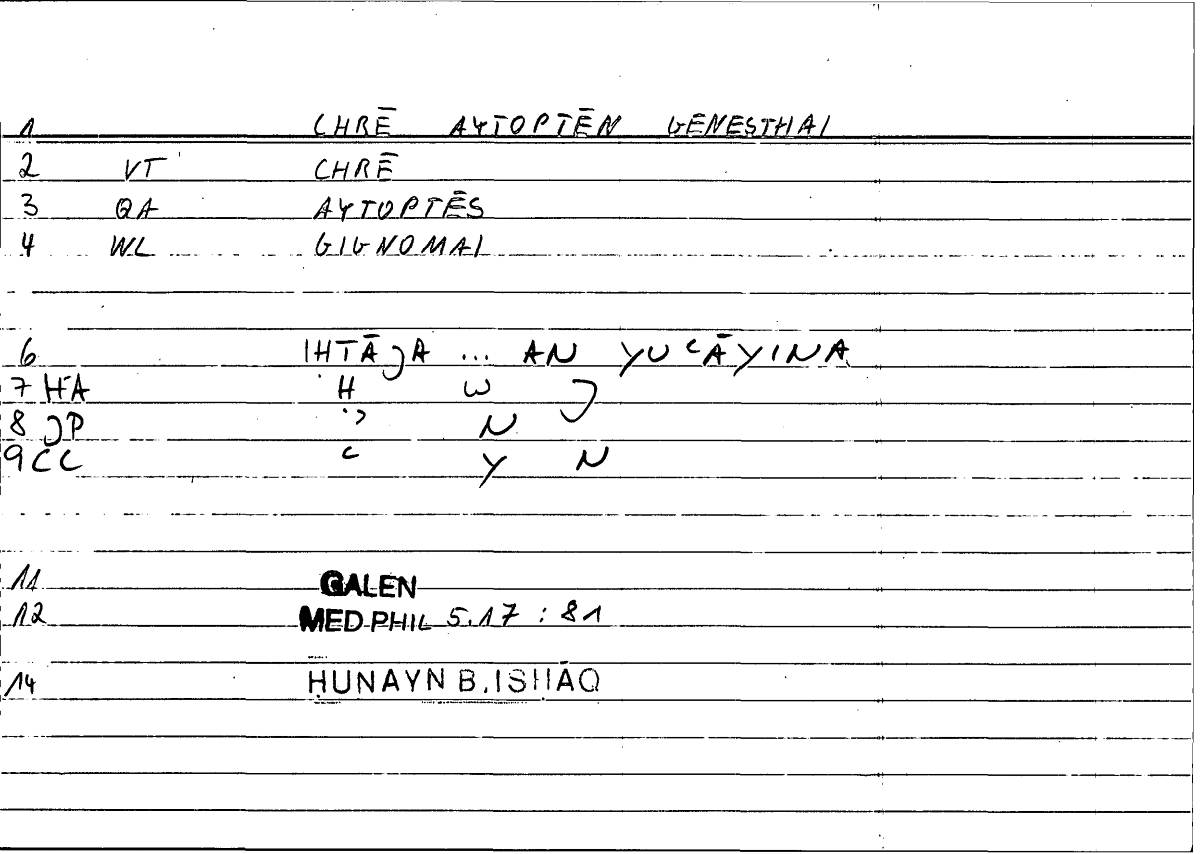 1 CHRĒ AYTOPTĒN GENESTHAI
2 VT CHRĒ
3 QA AYTOPTĒS
4 WL GIGNOMAI
6 IHTĀJA ... AN YUʿĀYINA
7 HA H W J
8 JP ʾ N
9 CC ʿ Y N
11 GALEN
12 MED PHIL 5.17 : 81
14 ḤUNAYN B. ISḤĀQ